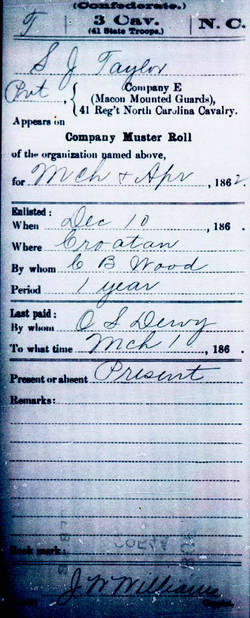 (Confederate.)
T 3 Cav. N. C.
(41 State Troops.)
S J Taylor
Pvt, Company E
(Macon Mounted Guards),
41 Reg't North Carolina Cavalry.
Appears on
Company Muster Roll
of the organization named above,
for Mch & Apr, 1862
Enlisted:
When Dec 10, 186 .
Where Croatan
By whom C B Wood
Period 1 year
Last paid:
By whom O S Dewy
To what time Mch 1, 186 .
Present or absent Present
Remarks:
Book mark:
J W Williams